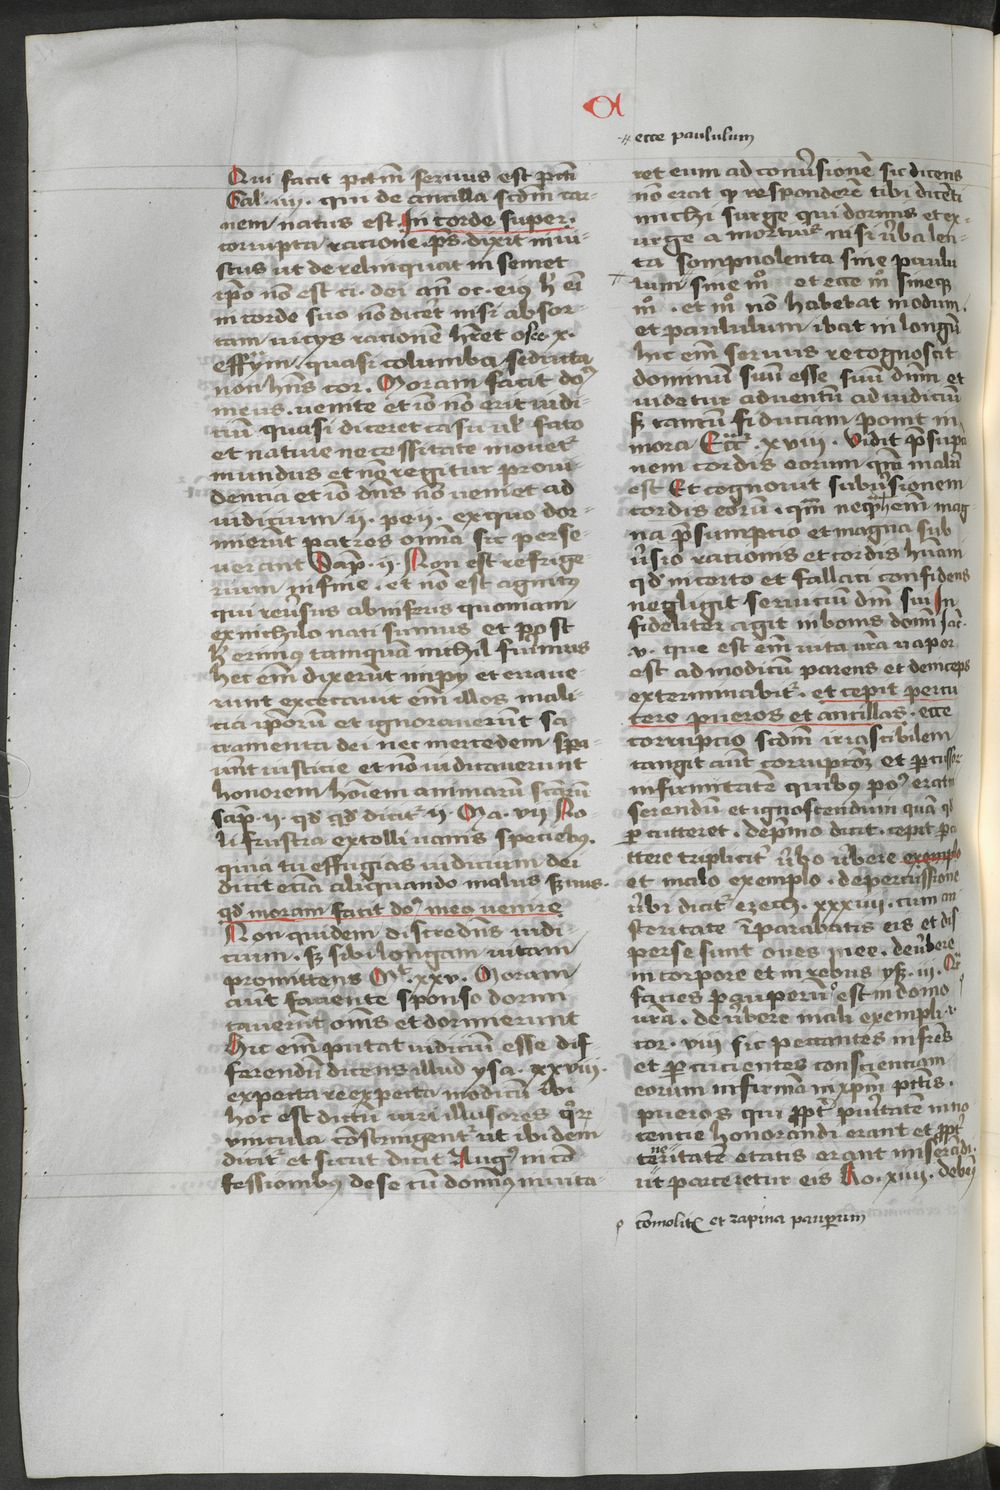 ecce paululum
Qui facit pctm̄ servus est pcti
Gal. iiij. qui de ancilla scdm̄ car-
nem natus est In corde super.
corrupta racione. ps. dixit iniu-
stus ut derelinquat in semet
ip̄o nō est ti. dei an̄ oc. eius h̄ em̄
in corde suo nō dicēt nisi absor-
tam uicijs racionē hr̄et osee x.
effrym. quasi columba seducta
non hn̄s cor. Moram facit do9
meus. uenire et iō nō erit iudi-
cium quasi diceret casu ul' fato
et nature necessitate mouet
mundus et nō regitur proui-
dencia et iō dn̄s nō ueniet ad
iudicium ij. pe ij. ex quo dor-
mierūt patres omā sic perse-
uerant Sap̄. ij. Non est refrige
rium in fine. et nō est agnitus
qui reūsus ab inferis quoniam
ex nichilo nati sumus et post
h̄ erimus tamquā nichil fuīmus
hec em̄ dixerūt impij et erraue-
runt excecauit em̄ illos mali-
cia ip̄orū et ignorauerūt sa-
cramenta dei nec mercedem spa-
uūt iusticie et nō iudicauerunt
honorem. hōiem animarum sctārū
sap̄. ij. qd qd dicit ij. Ma. vij No-
li frustra extolli uanis speciebus.
quia tu effugias iudicium dei
dicit eciā aliquando malus suus.
qd moram facit do9 meo uenire
Non quidem discredns iudi-
cium. sz sibi longam uitam
promittens Mt. xxv. Moram
aut faciente sponso dormi
tauerūt oms et dormierunt
Hic em̄ putat iudiciū esse dif
ferendū dicens illud ysa. xxviij.
expecta reexpecta modicū ibi
hoc est dictū uiri illusores
vincula cōstringentr ut ibidem
dicitr et sicut dicit Aug9 in cō
fessionibus de se cū domin9 inuita-
ret eum ad conūsionē sic dicens
nō erat qd respōnderē tibi dicēti
michi surge qui dormis et ex-
urge a mortuis nisi ūba len-
ta sompnolenta sine paulu
lum sine mō et ecce mō sineqz
mō. et mō nō habebat modum.
et paululum ibat in longū
hic em̄ seruus recognoscit
dominū suū esse suū dn̄m et
uidetur aduentū ad iudiciū
sz tantū fiduciam ponit in
mora Eccī. xviij. Vidit p̄sump
nem cordis eorum qm̄ mala
est Et cognouit subūsionem
cordis eorū. qm̄ neqam em̄ mag-
na p̄sumpcio et magna sub
ūsio racionis et cordis huam
qd incerto et fallaci confidens
negligit seruiciū dn̄i sui In
fideliter agit in bonis domī Jac̄.
v. que est em̄ uita ur̄a uapor
est ad modicū parens et deinceps
exterminabitr. et cepit percu
tere pueros et ancillas. ecce
corrupcio scdm̄ irrascibilem
tangit aut corrupcōz et percussor
infirmitatē quibus po9 erat
serendū et ignoscendum quā qd
percutteret. de pīmo dicit. cepit per
ttere triplicitr ūbo ūbere exemplo
et malo exemplo. de percussione
ūbi dicitr ezech. xxxiiij. cum au
steritate īparabatis eis et dis
perse sunt oues mee. de ūbere
in corpore et in rebus ysa. iij.
facies pauperū est in domo
ur̄a. de ūbere mali exempli. i.
cor. viij sic peccantes in fr̄es
et percucientes conscienciam
eorum infirmā in xp̄m pctis.
pueros qui pptr puītatē inno
cencie honorandi erant et pptr
teneritatē etatis erant miserādi.
ut parceretur eis Ro. xiiij. debem9
cōmolitr et rapina pauperum